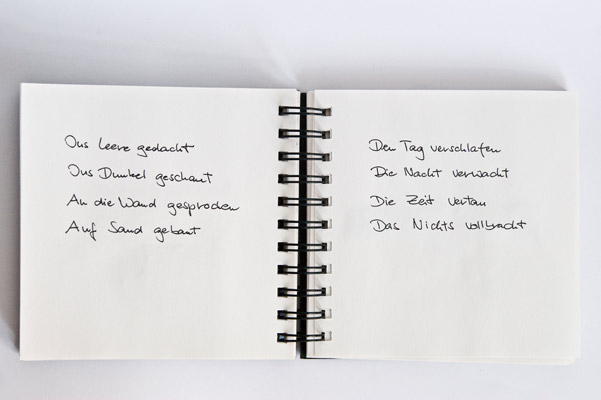 Ins Leere gedacht
Ins Dunkel geschaut
An die Wand gesprochen
Auf Sand gebaut
Den Tag verschlafen
Die Nacht verwacht
Die Zeit vertan
Das Nichts vollbracht